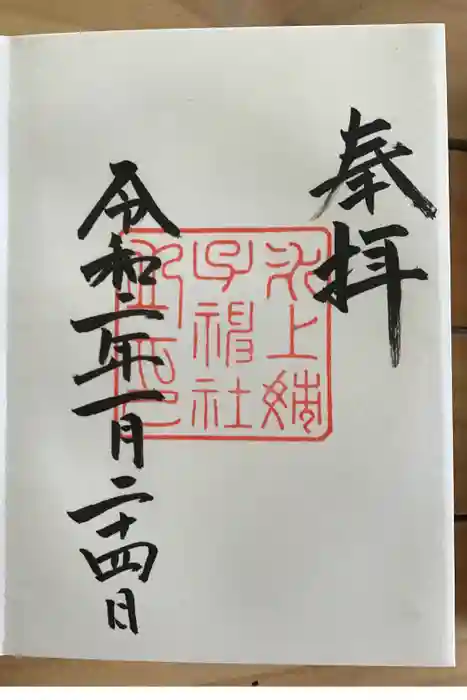 奉拝
氷上姉
子神社
令和二年一月二十四日